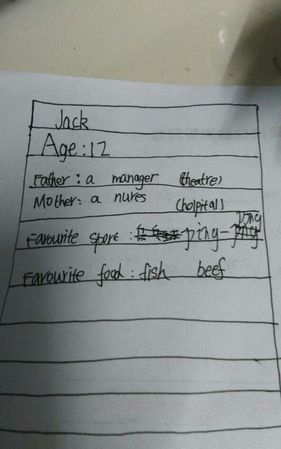 Jack
Age: 12
Father: a manager (theatre)
Mother: a nures (holpital)
Favourite sport: ping-pong
Favourite food: fish beef